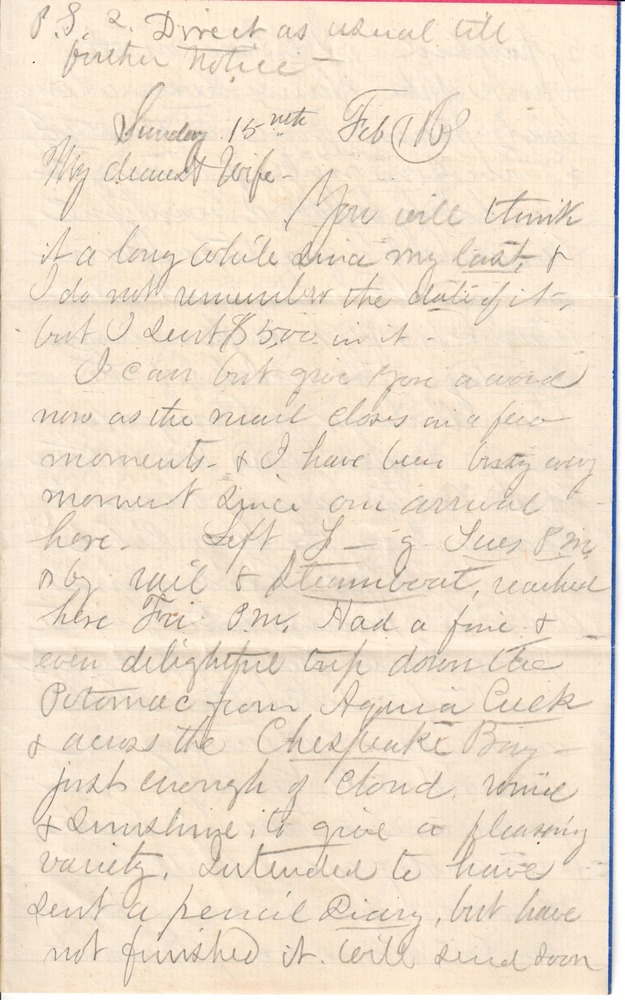 P.S 2. Direct as usual till
further notice -
Sunday 15nth Feb
My dearest Wife -
You will think
it a long while since my last, &
I do not remember the date of it -,
but I sent $5.00 in it -
I can but give you a word
now as the mail closes in a few
moments - & I have been busy every
moment since our arrival
here - Left F - g. Tues P.M,
& by rail & steamboat, reached
here Fri. P.M. Had a fine &
even delightful trip down the
Potomac from Aquia Creek
& across the Chespeake Bay -
just enough of cloud,
& sunshine, to give a pleasing
variety. Intended to have
sent a pencil Diary, but have
not finished it. Will send soon